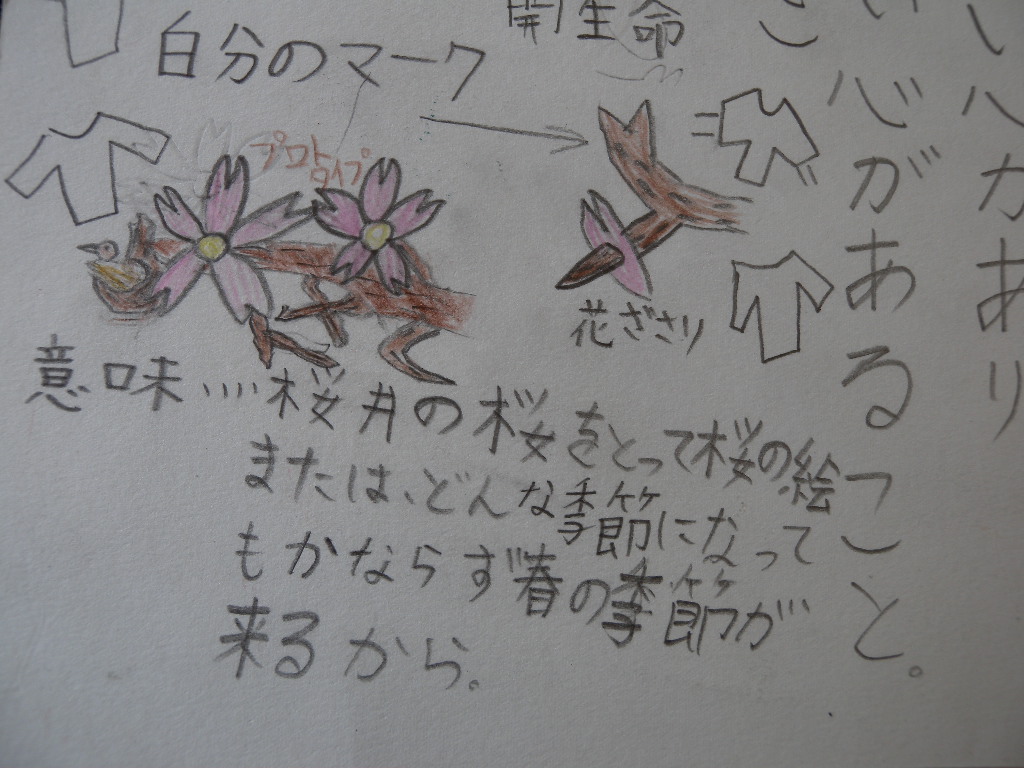 開生命
自分のマーク
プロトタイプ
花ざさり
意味‥‥桜井の桜をとって桜の絵
または、どんな季節になって
もかならず春の季節が
来るから。
がある
こと。